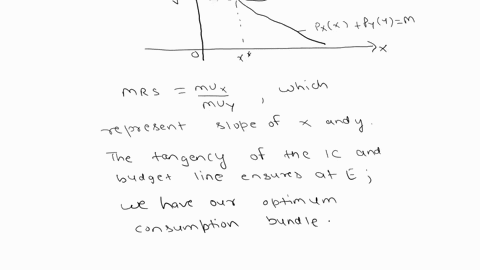 Px(x) + Py(Y) = M
0 x* x
MRS = MUx/MUy, which
represent slope of x and y.
The tangency of the IC and
budget line ensures at E;
we have our optimum
consumption bundle.